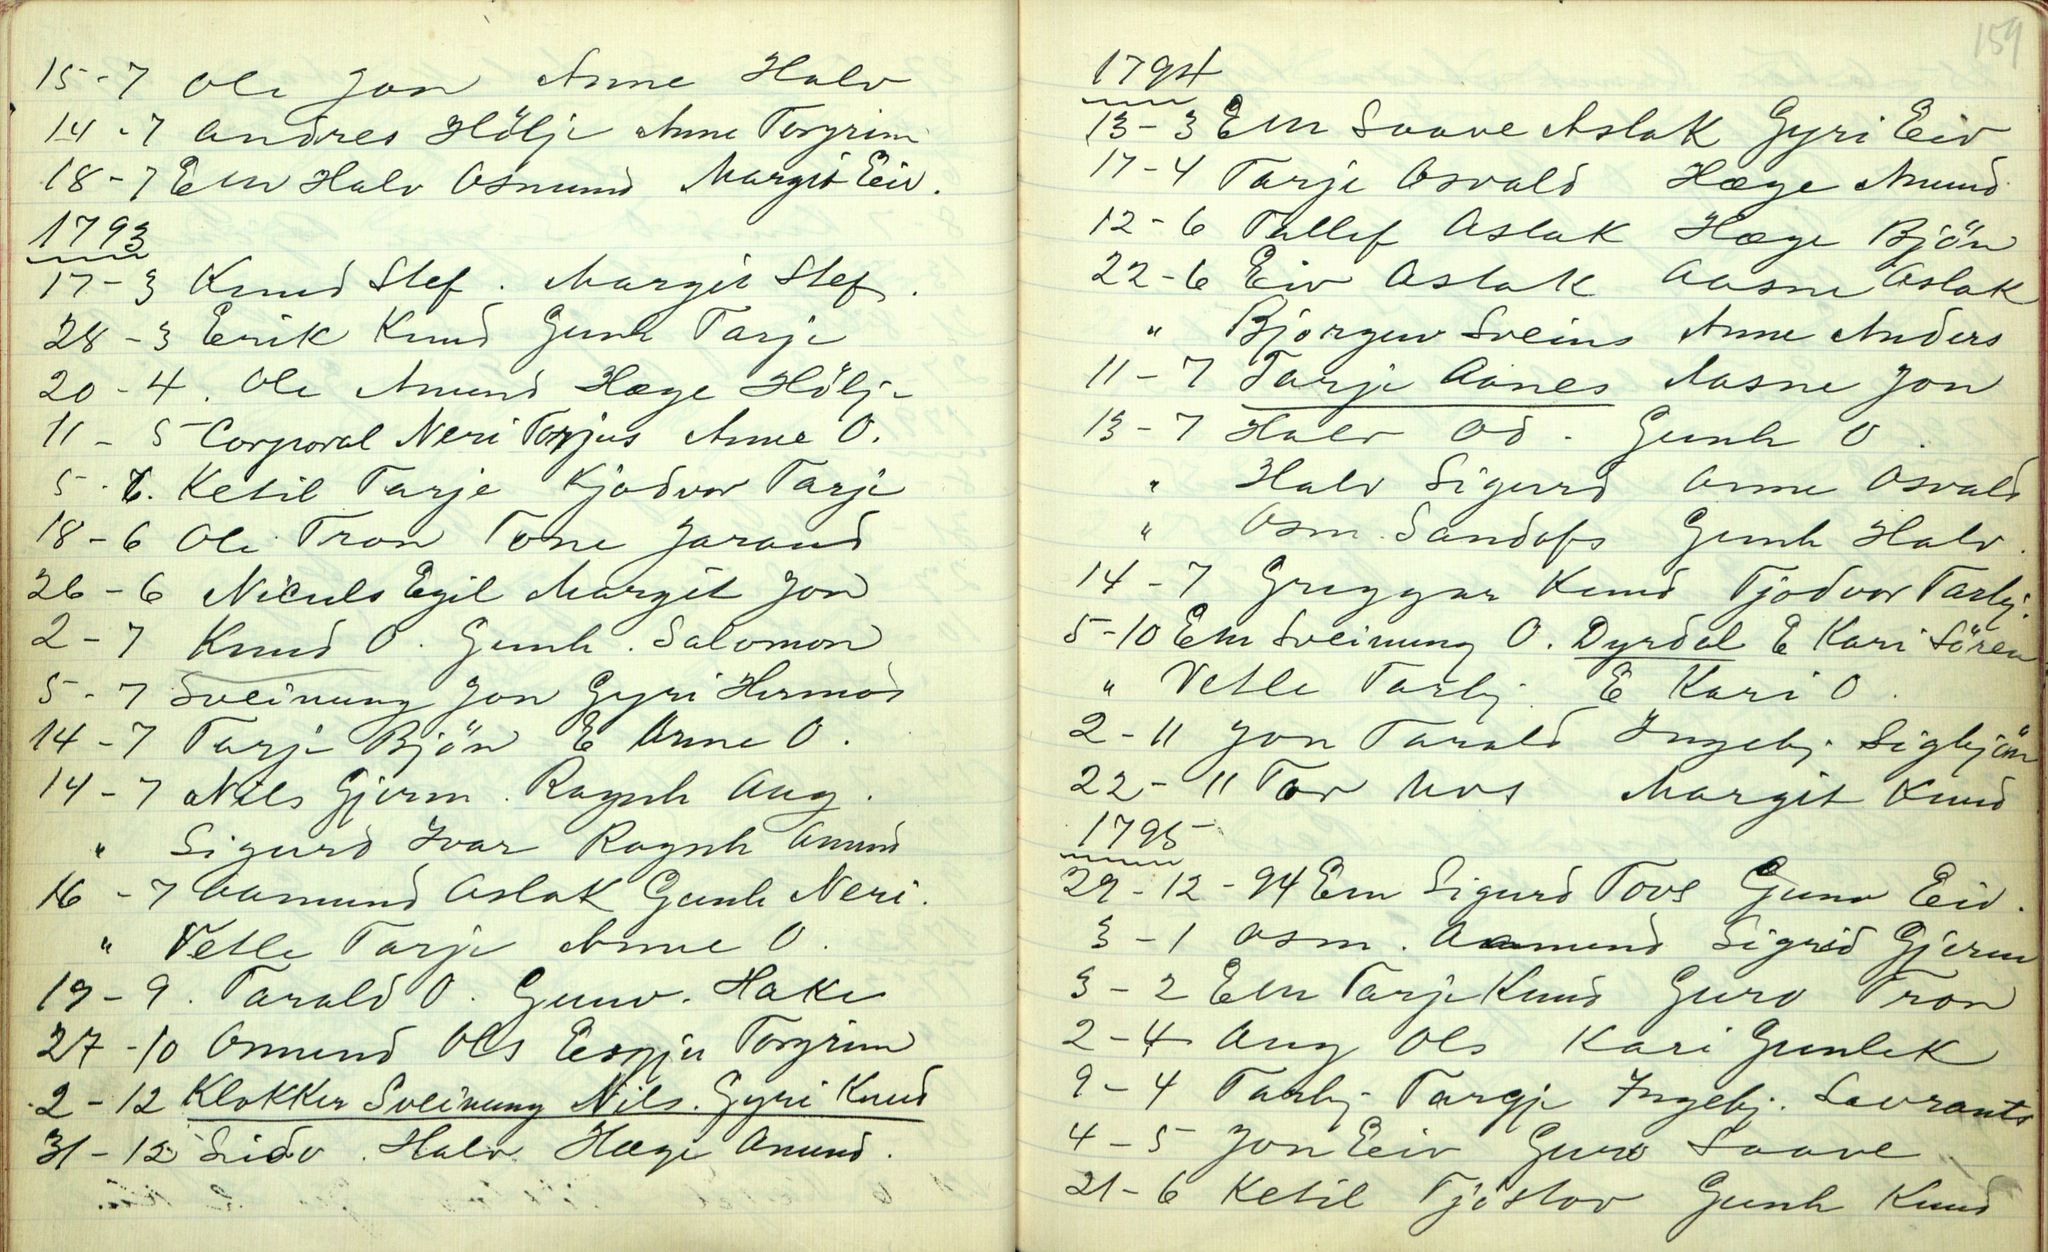 15-7 Ole Jon Anne Halv
14-7 Andres Hölje Anne Torgrim
18-7 Em Halv Osmund Margit Eiv.
1793
17-3 Knud Stef. Margit Stef.
28-3 Erik Knud Gunh Tarje
20-4. Ole Amund Hæge Hölje
11-5 Corporal Neri Torjus Anne O.
5-6. Ketil Tarje Kjodvor Tarje
18-6 Ole Tron Tone Jarand
26-6 Niculs Egil Margit Jon
2-7 Knud O. Gunh. Salomon
5-7 Sveinung Jon Gyri Hermod
14-7 Tarje Bjön E Anne O.
14-7 Nils Gjerm. Ragnh Aug.
" Sigurd Ivar Ragnh Amund
16-7 Aamund Aslak Gunh Neri.
" Vetle Tarje Anne O.
19-9. Tarald O. Gunv. Hake
27-10 Onund Ols Espju Torgrim
2-12 Klokker Sveinung Nils. Gyri Knud
31-12 Halv Hæge Amund.
159
1794
13-3 Em Saave Aslak Gyri Eiv
17-4 Tarje Osvald Hæge Amund
12-6 Tallef Aslak Hæge Bjön
22-6 Eiv Aslak Aasne Aslak
" Bjorguv Sveins Anne Anders
11-7 Tarje Aanes Aasne Jon
13-7 Halv Od. Gunh O.
" Halv Sigurd Anne Osvald
" Osm. Sandofs Gunh Halv.
14-7 Greggar Knud Tjodvor Tarbj.
5-10 Em Sveinung O. Dyrdal E Kari Sören
" Vetle Tarbj. E Kari O.
2-11 Jon Tarald Ingebj. Sigbjön
22-11 Tor Margit Knud
1795
29-12-94 Em Sigurd Tovs Gunv Eiv.
3-1 Osm. Aamund Sigrid Gjerm
3-2 Em Tarje Knud Guro Tron
2-4 Aug Ols Kari Gunlek
9-4 Tarbj. Targje Ingebj. Lavrants
4-5 Jon Eiv Guro Saave
21-6 Ketil Tjöstov Gunh Knud